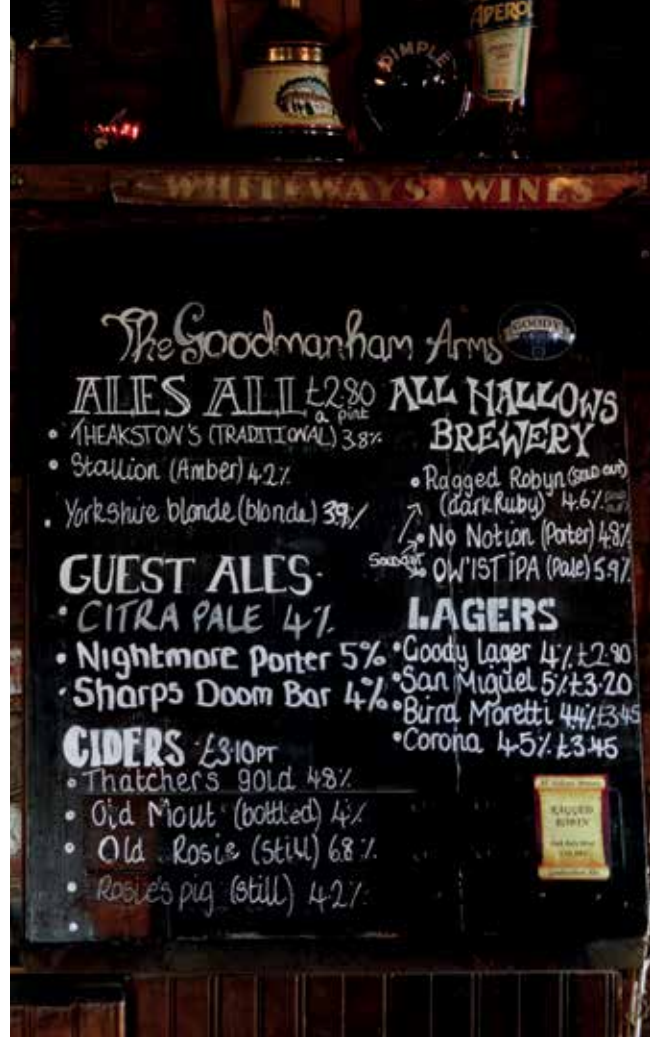 APEROL
DIMPLE
WHITEWAYS' WINES
The Goodmanham Arms
GOODY
ALES ALL £2.80
a pint
• THEAKSTON'S (TRADITIONAL) 3.8%
• Stallion (Amber) 4.2%
• Yorkshire blonde (blonde) 3.9%
GUEST ALES
• CITRA PALE 4%
• Nightmare Porter 5%
• Sharps Doom Bar 4%
CIDERS £3.10PT
• Thatchers gold 4.8%
• Old Mout (bottled) 4%
• Old Rosie (still) 6.8%
• Rosie's pig (still) 4.2%
ALL HALLOWS
BREWERY
• Ragged Robyn (SOLD OUT)
(dark Ruby) 4.6%
• No Notion (Porter) 4.8%
Sold out
• OW'IST IPA (Pale) 5.9%
LAGERS
• Goody Lager 4% £2.90
• San Miguel 5% £3.20
• Birra Moretti 4.4% £3.45
• Corona 4.5% £3.45
RAGGED
ROBYN